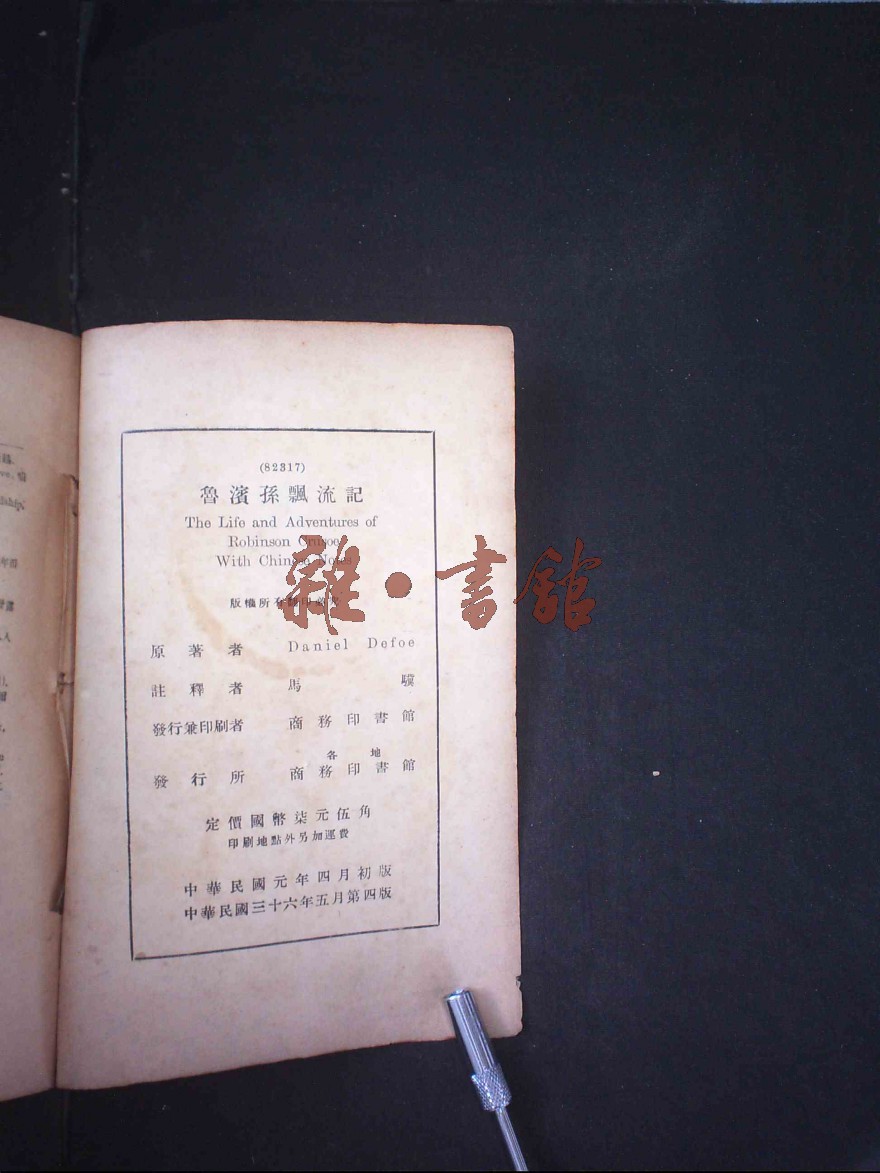 (82317)
魯濱孫飄流記
The Life and Adventures of
Robinson Crusoe
With Chinese Notes
版權所有翻印必究
原著者 Daniel Defoe
註釋者 馬驥
發行兼印刷者 商務印書館
各地
發行所 商務印書館
定價國幣柒元伍角
印刷地點外另加運費
中華民國元年四月初版
中華民國三十六年五月第四版
雜·書館